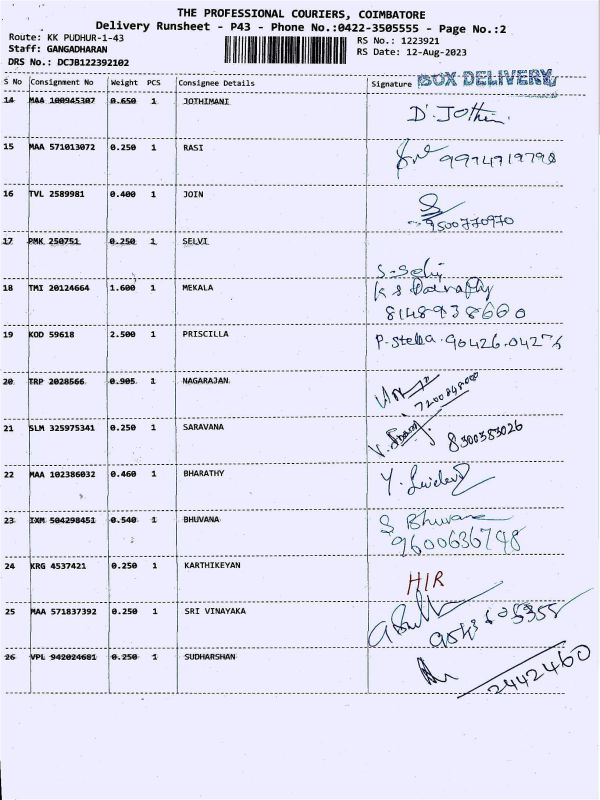 THE PROFESSIONAL COURIERS, COIMBATORE
Delivery Runsheet - P43 - Phone No.:0422-3505555 - Page No.:2
Route: KK PUDHUR-1-43 RS No.: 1223921
Staff: GANGADHARAN RS Date: 12-Aug-2023
DRS No.: DCJB122392102
S No Consignment No Weight PCS Consignee Details Signature BOX DELIVERY
14 MAA 100945307 0.650 1 JOTHIMANI D. Jothi
15 MAA 571013072 0.250 1 RASI
16 TVL 2589981 0.400 1 JOIN 9500770970
17 PMK 250751 0.250 1 SELVI S-Selvi
18 TMI 20124664 1.600 1 MEKALA
8148938660
19 KOD 59618 2.500 1 PRISCILLA P. Stella
20 TRP 2028566 0.905 1 NAGARAJAN
21 SLM 325975341 0.250 1 SARAVANA 8300383026
22 MAA 102386032 0.460 1 BHARATHY
23 IXM 504298451 0.540 1 BHUVANA S Bhuvana
9600636748
24 KRG 4537421 0.250 1 KARTHIKEYAN H/R
25 MAA 571837392 0.250 1 SRI VINAYAKA
26 VPL 942024681 0.250 1 SUDHARSHAN 2442460